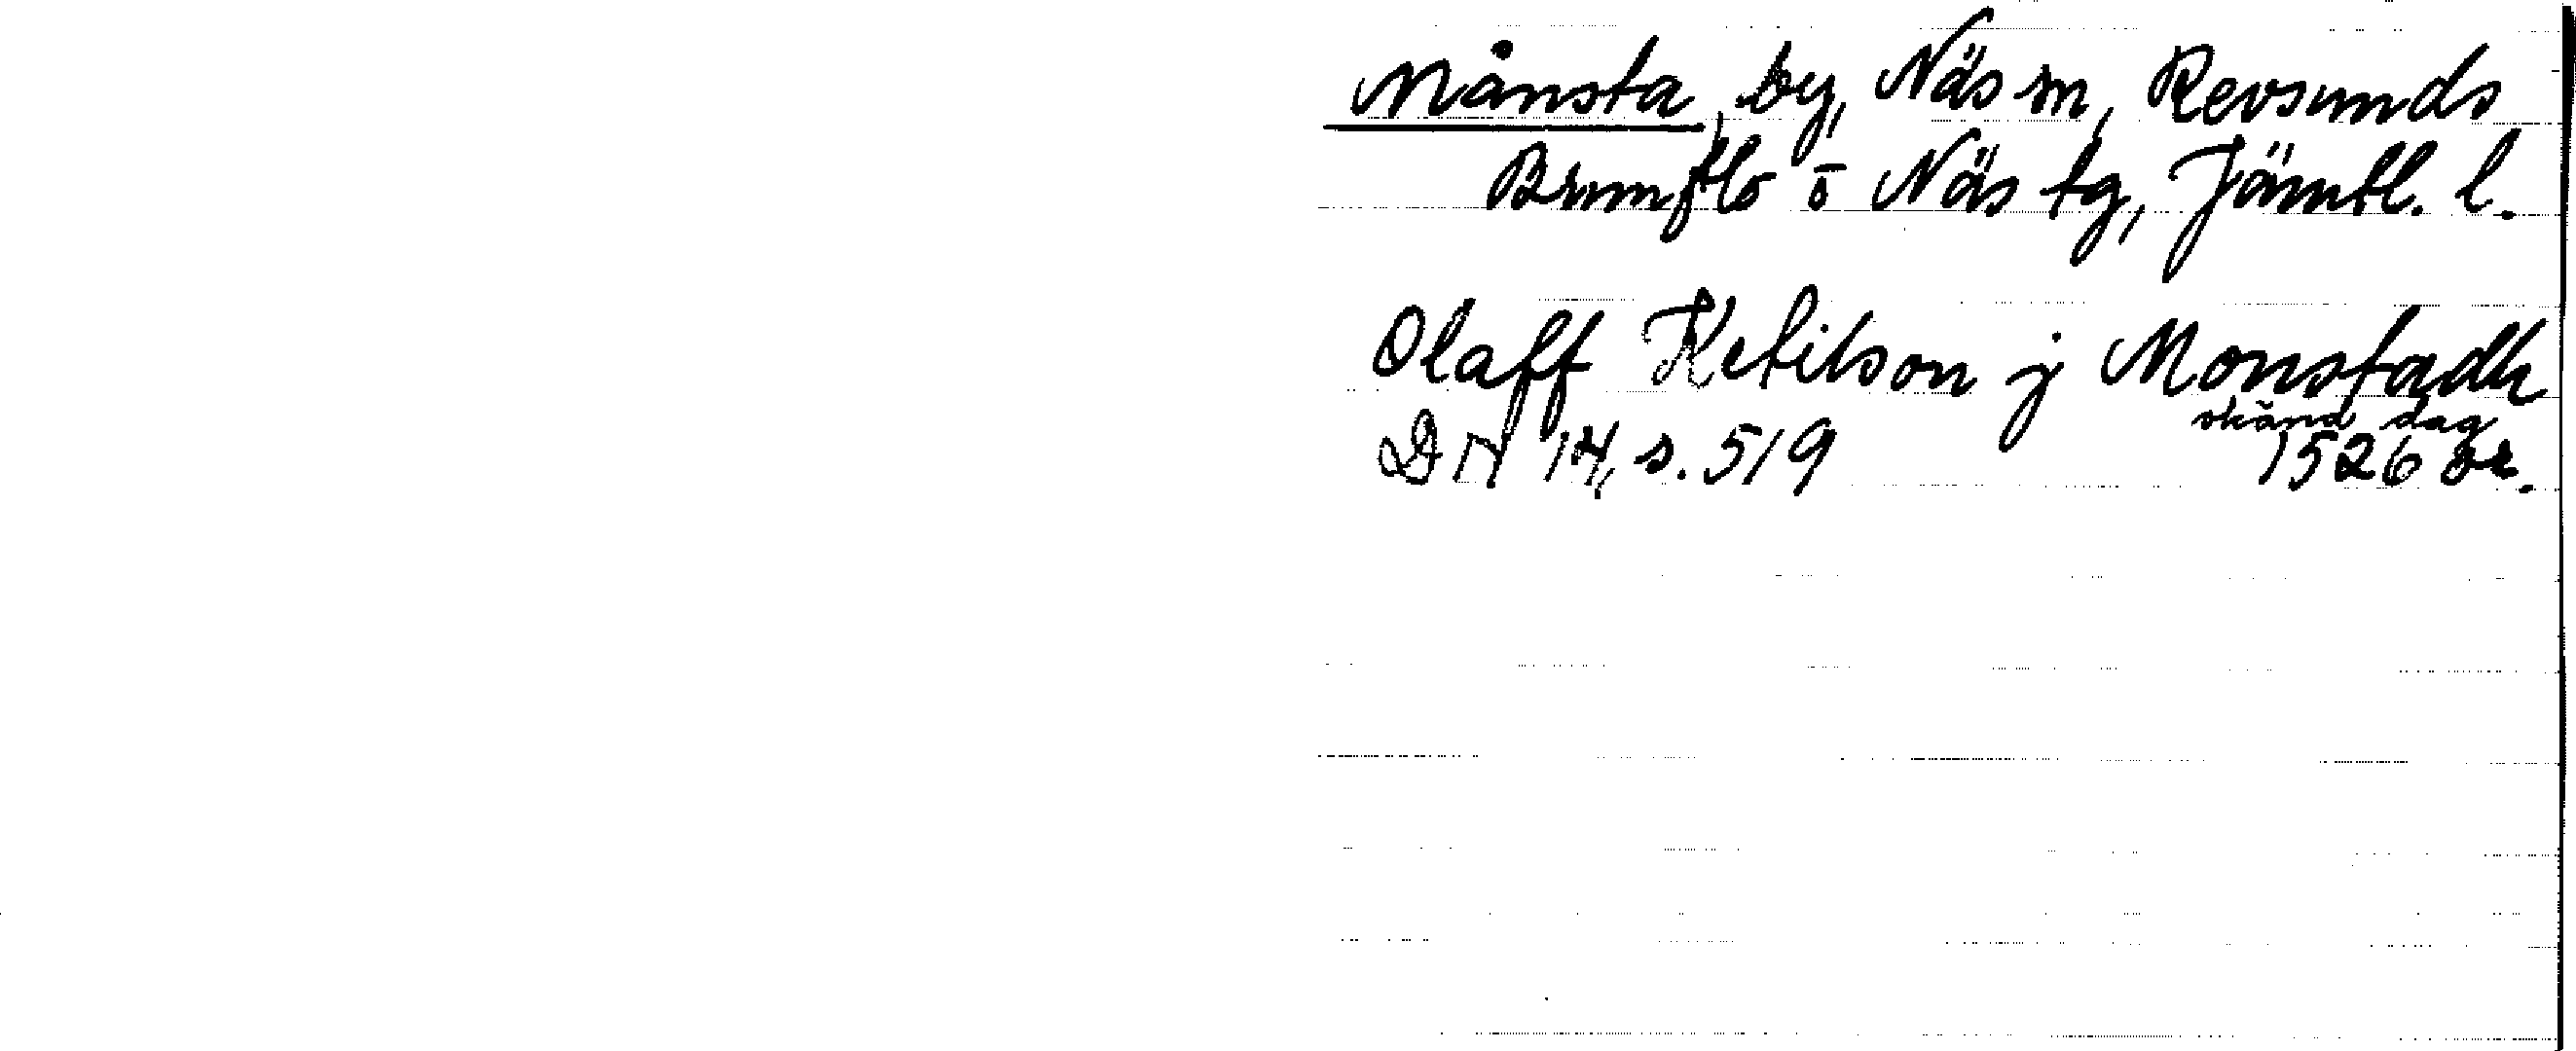 Månsta, by, Näs sn, Revsunds
Brunflo o Näs tg, Jämtl. l.
Olaff Ketilson j Monstadh
DN 14, s. 519 1526 or.
okänd dag